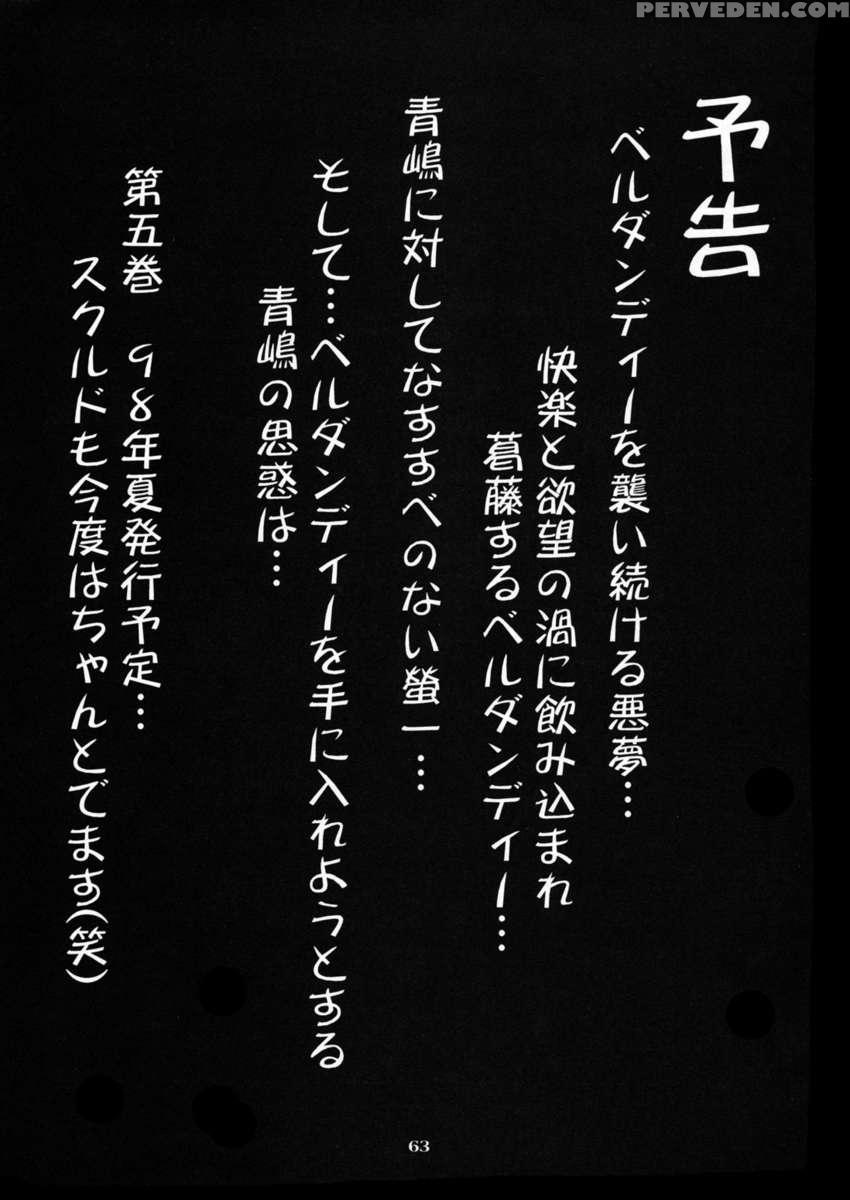 PERVEDEN.COM
予告
ベルダンディーを襲い続ける悪夢…
快楽と欲望の渦に飲み込まれ
葛藤するベルダンディー…
青嶋に対してなすすべのない螢一…
そして…ベルダンディーを手に入れようとする
青嶋の思惑は…
第五巻　98年夏発行予定…
スクルドも今度はちゃんとでます(笑)
63